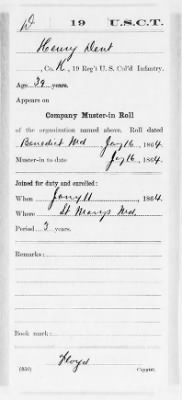 D 19 U.S.C.T.
Henry Dent
, Co. K, 19 Reg't U. S. Col'd Infantry.
Age 39 years.
Appears on
Company Muster-in Roll
of the organization named above. Roll dated
Benedict Md Jany 16, 1864.
Muster-in to date Jany 16, 1864.
Joined for duty and enrolled:
When Jany 11, 1864.
Where St Marys Md.
Period 3 years.
Remarks:
Book mark:
Floyd
Copyist.